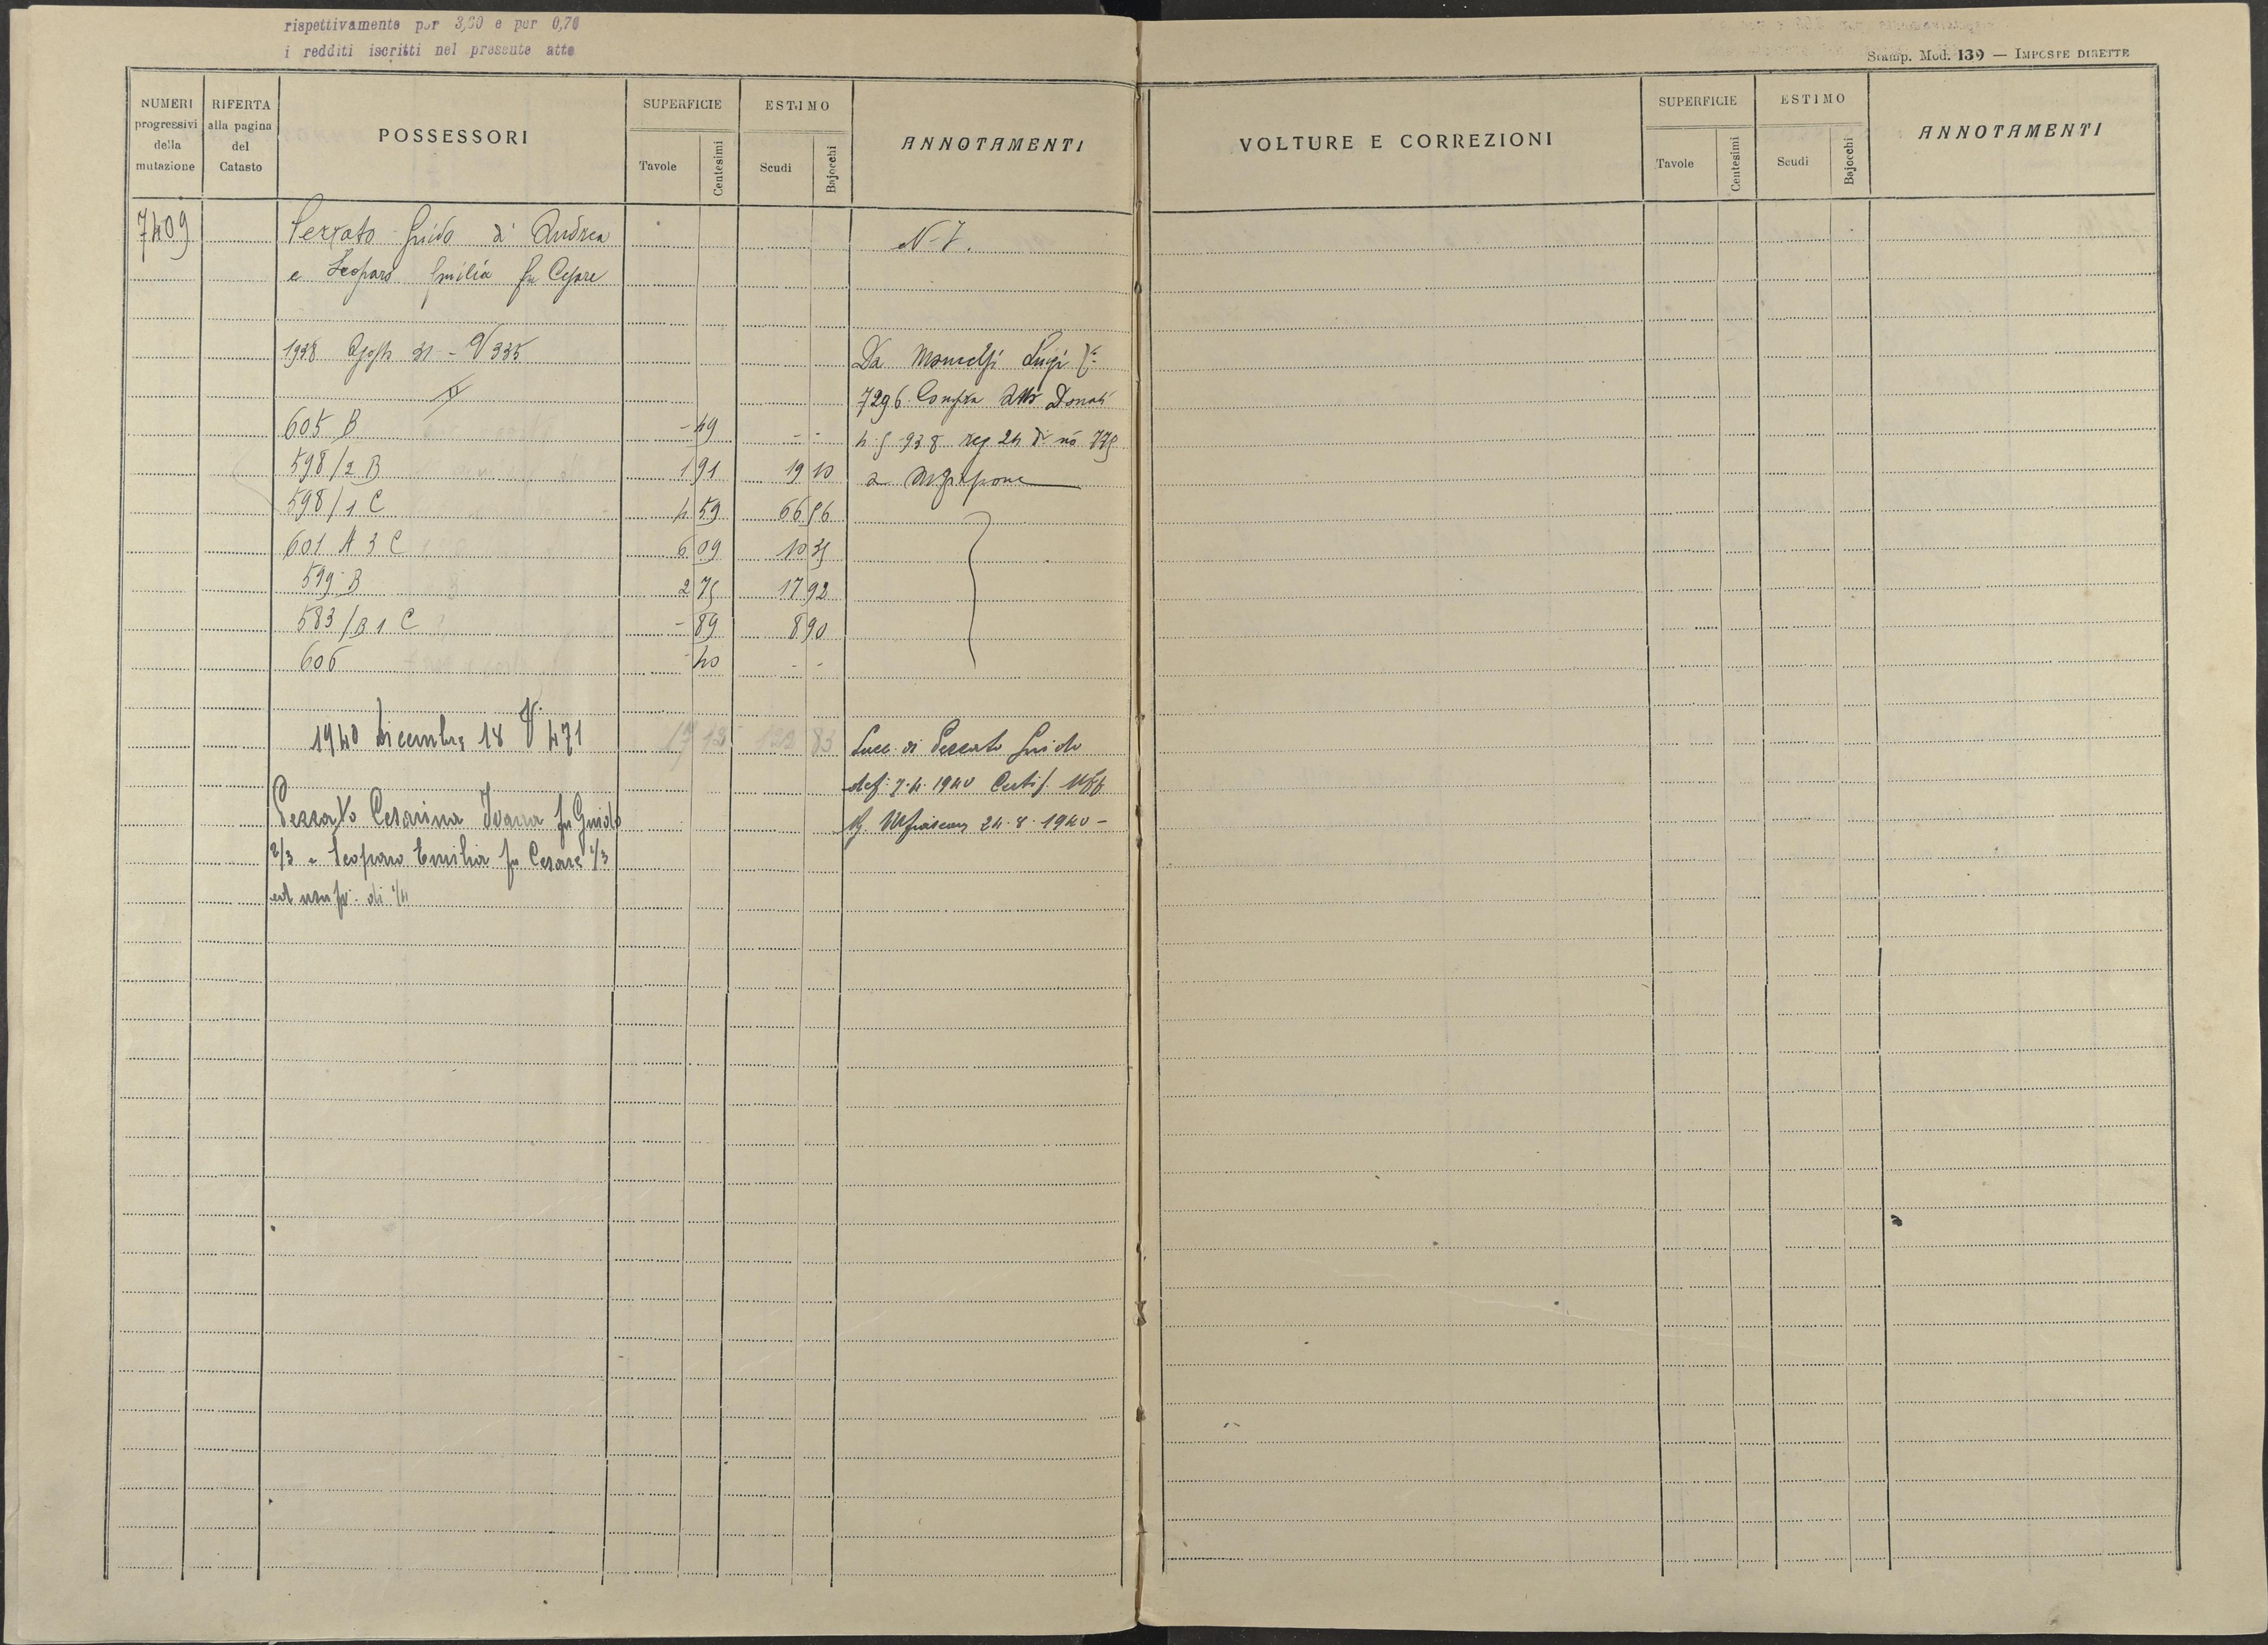 rispettivamente per 3,60 e per 0,70
i redditi iscritti nel presente atto
Stamp. Mod. 139 — IMPOSTE DIRETTE
NUMERI progressivi della mutazione
RIFERTA alla pagina del Catasto
POSSESSORI
SUPERFICIE
Tavole
Centesimi
ESTIMO
Scudi
Bajocchi
ANNOTAMENTI
VOLTURE E CORREZIONI
SUPERFICIE
Tavole
Centesimi
ESTIMO
Scudi
Bajocchi
ANNOTAMENTI
7409 Pezzato Guido di Andrea
e Scoparo Emilia fu Cesare
1938 31 - V 335
Da Luigi
7296 Compra Donati
605 B - 49 - -
598/2 B 1 91 19 10
598/1 C 4 59 66 56
601 A 3 C 6 09 10 35
599 B 2 75 17 92
583/B1 C - 89 8 90
606 - 40 - -
1940 Dicembre 18 V. 471
Succ. di Pezzato Guido
def. 7.4.1940 Certif. Uff
24.8.1940 -
Pezzato Cesarina Ivana fu Guido
2/3 e Scoparo Emilia fu Cesare 1/3
ed usufr. di 1/4